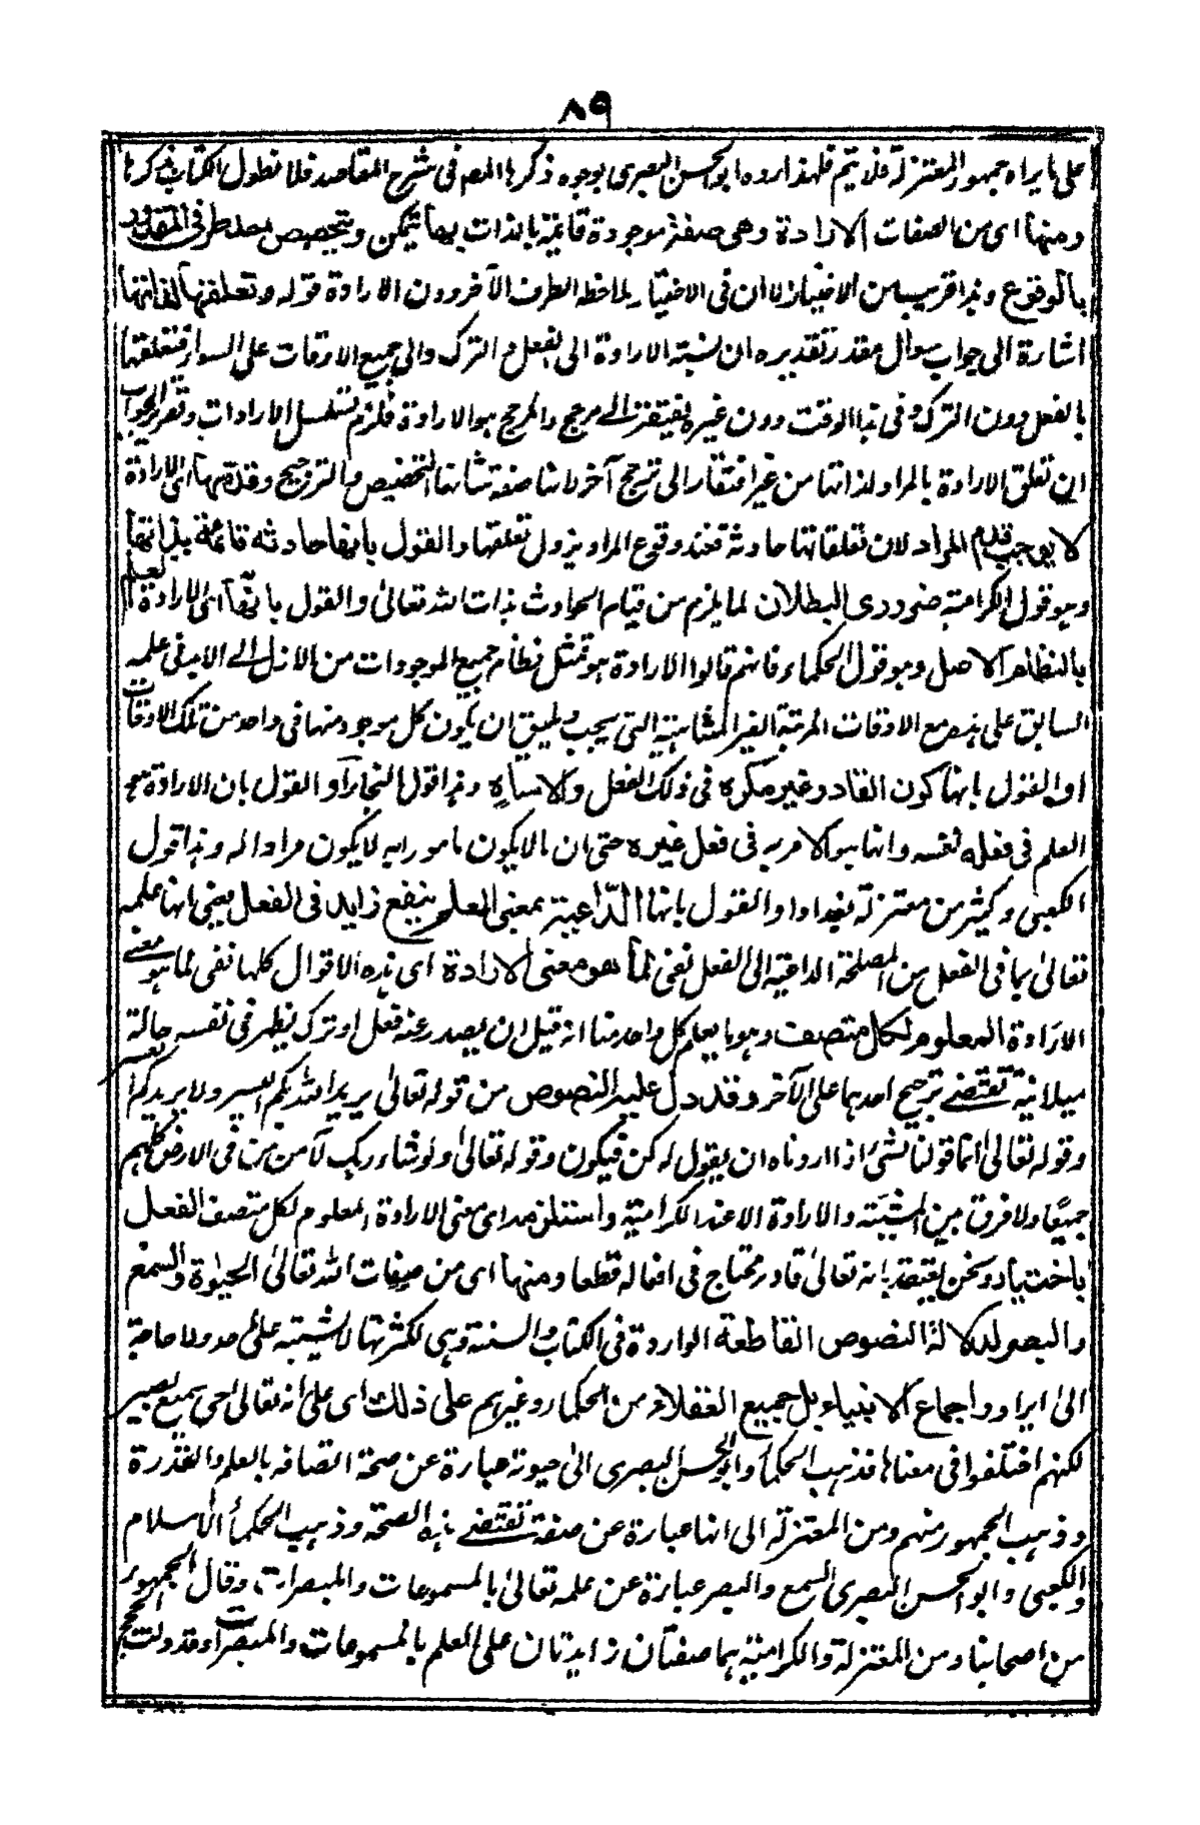 ٨٩
على ما يراه جمهور المعتزلة فلا يتم فلهذا رده ابو الحسن البصرى بوجوه ذكرها المص فى شرح المقاصد فلا نطول الكتاب بذكرها
ومنها اى من الصفات الارادة وهى صفة موجودة قائمة بالذات بها يتمكن ويتخصص احد طرفى المقدور
بالوقوع وهذا قريب من الاختيار الا ان فى الاختيار يلاحظ الطرف الآخر دون الارادة قوله وتعلقها لذاتها
اشارة الى جواب سوال مقدر تقديره ان نسبة الارادة الى الفعل والترك والى جميع الاوقات على السواء فتعلقها
بالفعل دون الترك وفى هذا الوقت دون غيره يفتقر الى مرجح والمرجح هو الارادة فلزم تسلسل الارادات وتقرير الجواب
ان تعلق الارادة بالمراد لذاتها من غير افتقار الى ترجح آخر لانها صفة شانها التخصيص والترجيح وقدمها اى الارادة
لا يوجب قدم المراد لان تعلقاتها حادثة فعند وقوع المراد يزول تعلقها والقول بانها حادثه قائمة بذاتها
وهو قول الكرامية ضرورى البطلان لما يلزم من قيام الحوادث بذات الله تعالى والقول بانها اى الارادة العلم
بالنظام الاصل وهو قول الحكماء فانهم قالوا الارادة هو تمثل نظام جميع الموجودات من الازل الى الابد فى علمه
السابق على هذه مع الاوقات المرتبة الغير المتناهية التى يجب ويليق ان يكون كل موجود منها فى واحد من تلك الاوقات
او القول بانها كون القادر غير مكره فى ذلك الفعل ولا ساه وهذا قول النجار او القول بان الارادة هو
العلم فى فعله نفسه وانها هو الامر به فى فعل غيره حتى ان ما لا يكون مامورا به لا يكون مرادا له وهذا قول
الكعبى وكثير من معتزلة بغداد او القول بانها الداعية بمعنى العلم بنفع زايد فى الفعل يعنى انها علمه
تعالى بما فى الفعل من المصلحة الداعية الى الفعل نفى لما هو معنى الارادة اى هذه الاقوال كلها نفى لما هو معنى
الارادة المعلوم لكل متصف وهو ما يعلم كل واحد منا انه قبل ان يصدر عنه فعل او ترك يظهر فى نفسه حالة
ميلانية تقتضى ترجيح احدهما على الآخر وقد دل عليه النصوص من قوله تعالى يريد الله بكم اليسر ولا يريد بكم العسر
وقوله تعالى انما قولنا لشئ اذا اردناه ان يقول له كن فيكون وقوله تعالى ولو شاء ربك لآمن من فى الارض كلهم
جميعا ولا فرق بين المشيئة والارادة الا عند الكرامية واستلزامه اى معنى الارادة المعلوم لكل متصف الفعل
باختياره ونحن نعتقد بانه تعالى قادر مختار فى افعاله قطعا ومنها اى من صفات الله تعالى الحيوة والسمع
والبصر لدلالة النصوص القاطعة الواردة فى الكتاب والسنة وهى لكثرتها لا يشتبه على احد ولا حاجة
الى ايراد واجماع الانبياء بل جميع العقلاء من الحكماء وغيرهم على ذلك اى على انه تعالى حى سميع بصير
لكنهم اختلفوا فى معناها فذهب الحكماء وابو الحسن البصرى الى حيوته عبارة عن صحة اتصافه بالعلم والقدرة
وذهب الجمهور منهم ومن المعتزلة الى انها عبارة عن صفة تقتضى هذه الصحة وذهب الحكماء الاسلام
والكعبى وابو الحسن البصرى السمع والبصر عبارة عن علمه تعالى بالمسموعات والمبصرات وقال الجمهور
من اصحابنا ومن المعتزلة والكرامية هما صفتان زايدتان على العلم بالمسموعات والمبصرات وقد دلت الحجج